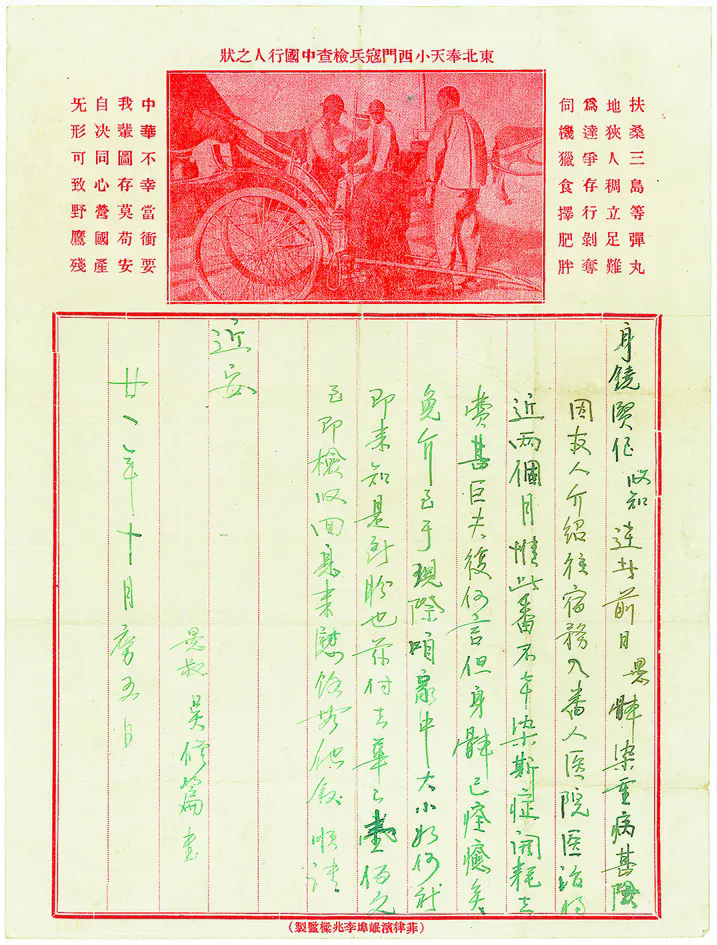 東北奉天小西門寇兵檢查中國行人之狀
扶桑三島等彈丸
地狹人稠立足難
爲達爭存行剝奪
伺機獵食擇肥胖
中華不幸當衝要
我輩圖存莫苟安
自决同心營國產
旡形可致野鷹殘
身鏡賢侄收知 達者前日愚體染重病甚險
因友人介紹往宿務入番人医院医治將
近兩個月惟此番不幸染斯症開耗之
費甚巨夫復何言但身體已痊癒矣
免介至于現際咱家中大小如何祈
即来知是所盼也茲付去華銀壹佰元
至即檢收回息来慰餘無他敘順請
近安
愚叔 吳修篇書
年十月五日
(菲律濱岷埠李兆樑監製)